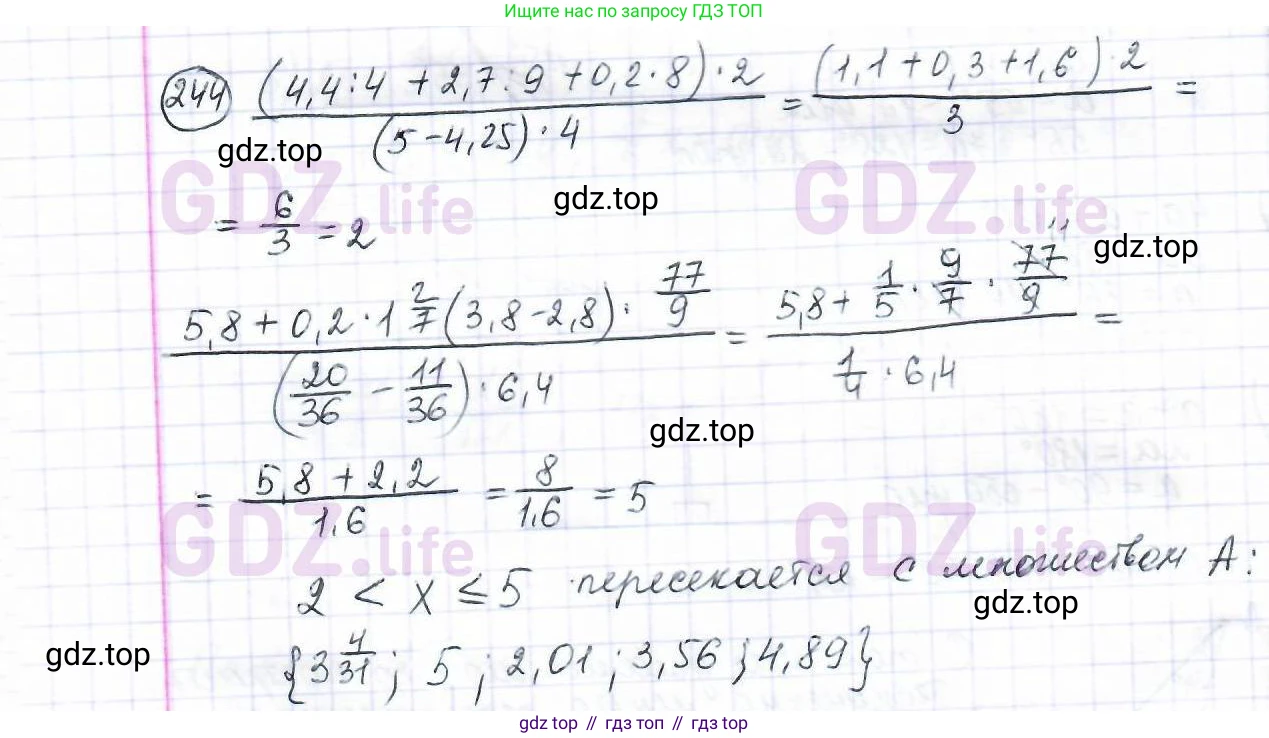 Ищите нас по запросу ГДЗ ТОП
244 (4,4:4 + 2,7:9 + 0,2·8)·2 / (5-4,25)·4 = (1,1+0,3+1,6)·2 / 3 =
gdz.top
GDZ.life GDZ.life
gdz.top
= 6/3 = 2
gdz.top
5,8 + 0,2·1 2/7 (3,8-2,8)· 77/9 / (20/36 - 11/36)·6,4 = 5,8 + 1/5 · 9/7 · 77/9 11 / 1/4 · 6,4 =
gdz.top
= 5,8 + 2,2 / 1,6 = 8/1,6 = 5
GDZ.life GDZ.life
2 < x ≤ 5 пересекается с множеством А:
gdz.top
gdz.top
{3 4/31; 5; 2,01; 3,56; 4,89}
gdz top // гдз топ // gdz top